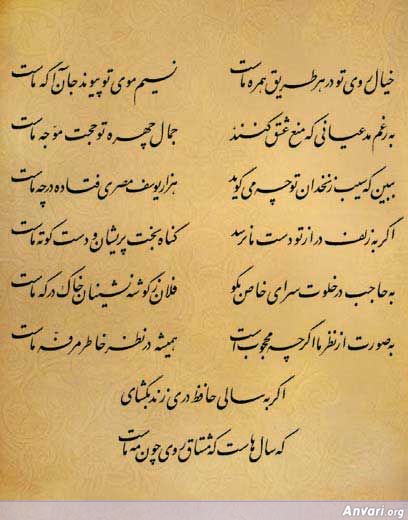 خیال روی تو در هر طریق همره ماست نسیم موی تو پیوند جان آگه ماست
به رغم مدعیانی که منع عشق کنند جمال چهره تو حجت موجه ماست
ببین که سیب زنخدان تو چه می گوید هزار یوسف مصری فتاده در چه ماست
اگر به زلف دراز تو دست ما نرسد گناه بخت پریشان و دست کوته ماست
به حاجب در خلوت سرای خاص بگو فلان ز گوشه نشینان خاک درگه ماست
به صورت از نظر ما اگر چه محجوب است همیشه در نظر خاطر مرفه ماست
اگر به سالی حافظ دری زند بگشای
که سال هاست که مشتاق روی چون مه ماست
Anvari.org